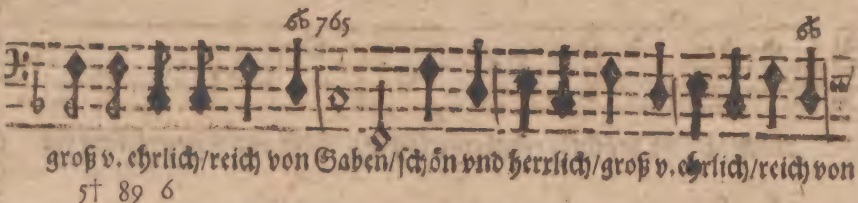 6b 765 6b
groß v. ehrlich/reich von Gaben/schön vnd herrlich/groß v. ehrlich/reich von
5† 89 6